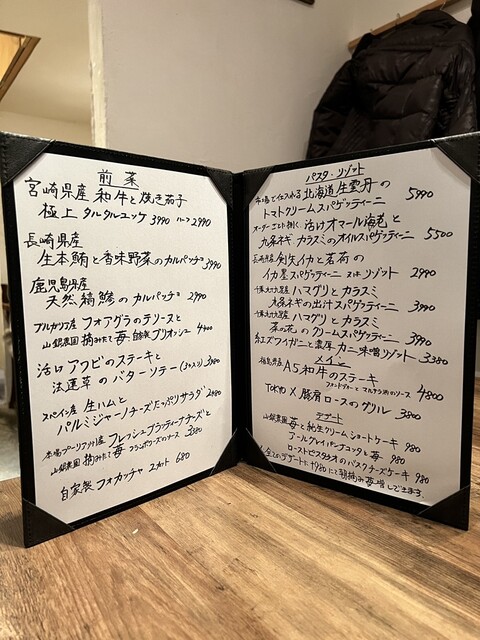 前菜
宮崎県産 和牛と焼き茄子
極上 タルタルユッケ 3990 ハーフ2990
長崎県産
生本鮪と香味野菜のカルパッチョ 3990
鹿児島県産
天然縞鯵のカルパッチョ 2990
ブルガリア産 フォアグラのテリーヌと
山銀農園 摘みたて苺 自家製 ブリオッシュ 4400
活けアワビのステーキと
法蓮草のバターソテー 3980
スペイン産 生ハムと
パルミジャーノチーズたっぷりサラダ 2480
本場プーリア州産 フレッシュブラッティーナチーズと
山銀農園 摘みたて 苺 3380
自家製 フォカッチャ 2カット 680
パスタ・リゾット
市場で仕入れる 北海道 生雲丹の
トマトクリームスパゲッティーニ 5990
オーダーごとに捌く 活けオマール海老と
九条ネギ カラスミのオイルスパゲッティーニ 5500
長崎県産 剣先イカと茗荷の
イカ墨スパゲッティーニ リゾット 2990
千葉九十九里産 ハマグリとカラスミ
九条ネギの出汁スパゲッティーニ 3990
千葉九十九里産 ハマグリとカラスミ
菜の花のクリームスパゲッティーニ 3990
紅ズワイガニと濃厚カニ味噌リゾット 3380
メイン
福島県産 A5和牛のステーキ
のソース 4800
TOKYO X 豚肩ロースのグリル 3800
デザート
山銀農園 苺と純生クリームショートケーキ 980
アールグレイパンナコッタと苺 980
ローストピスタチオのバスクチーズケーキ 980
全てのデザートに +980にて 朝摘み苺増しできます。